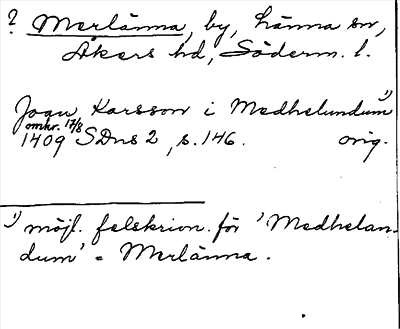 ? Merlänna, by, Länna sn,
Åkers hd, Söderm. l.
Joan Karsson i Medhelundum 1)
omkr. 17/8
1409 SDns 2, s. 146. orig.
1) möjl. felskrivn. för 'Medhelan-
dum' = Merlänna.